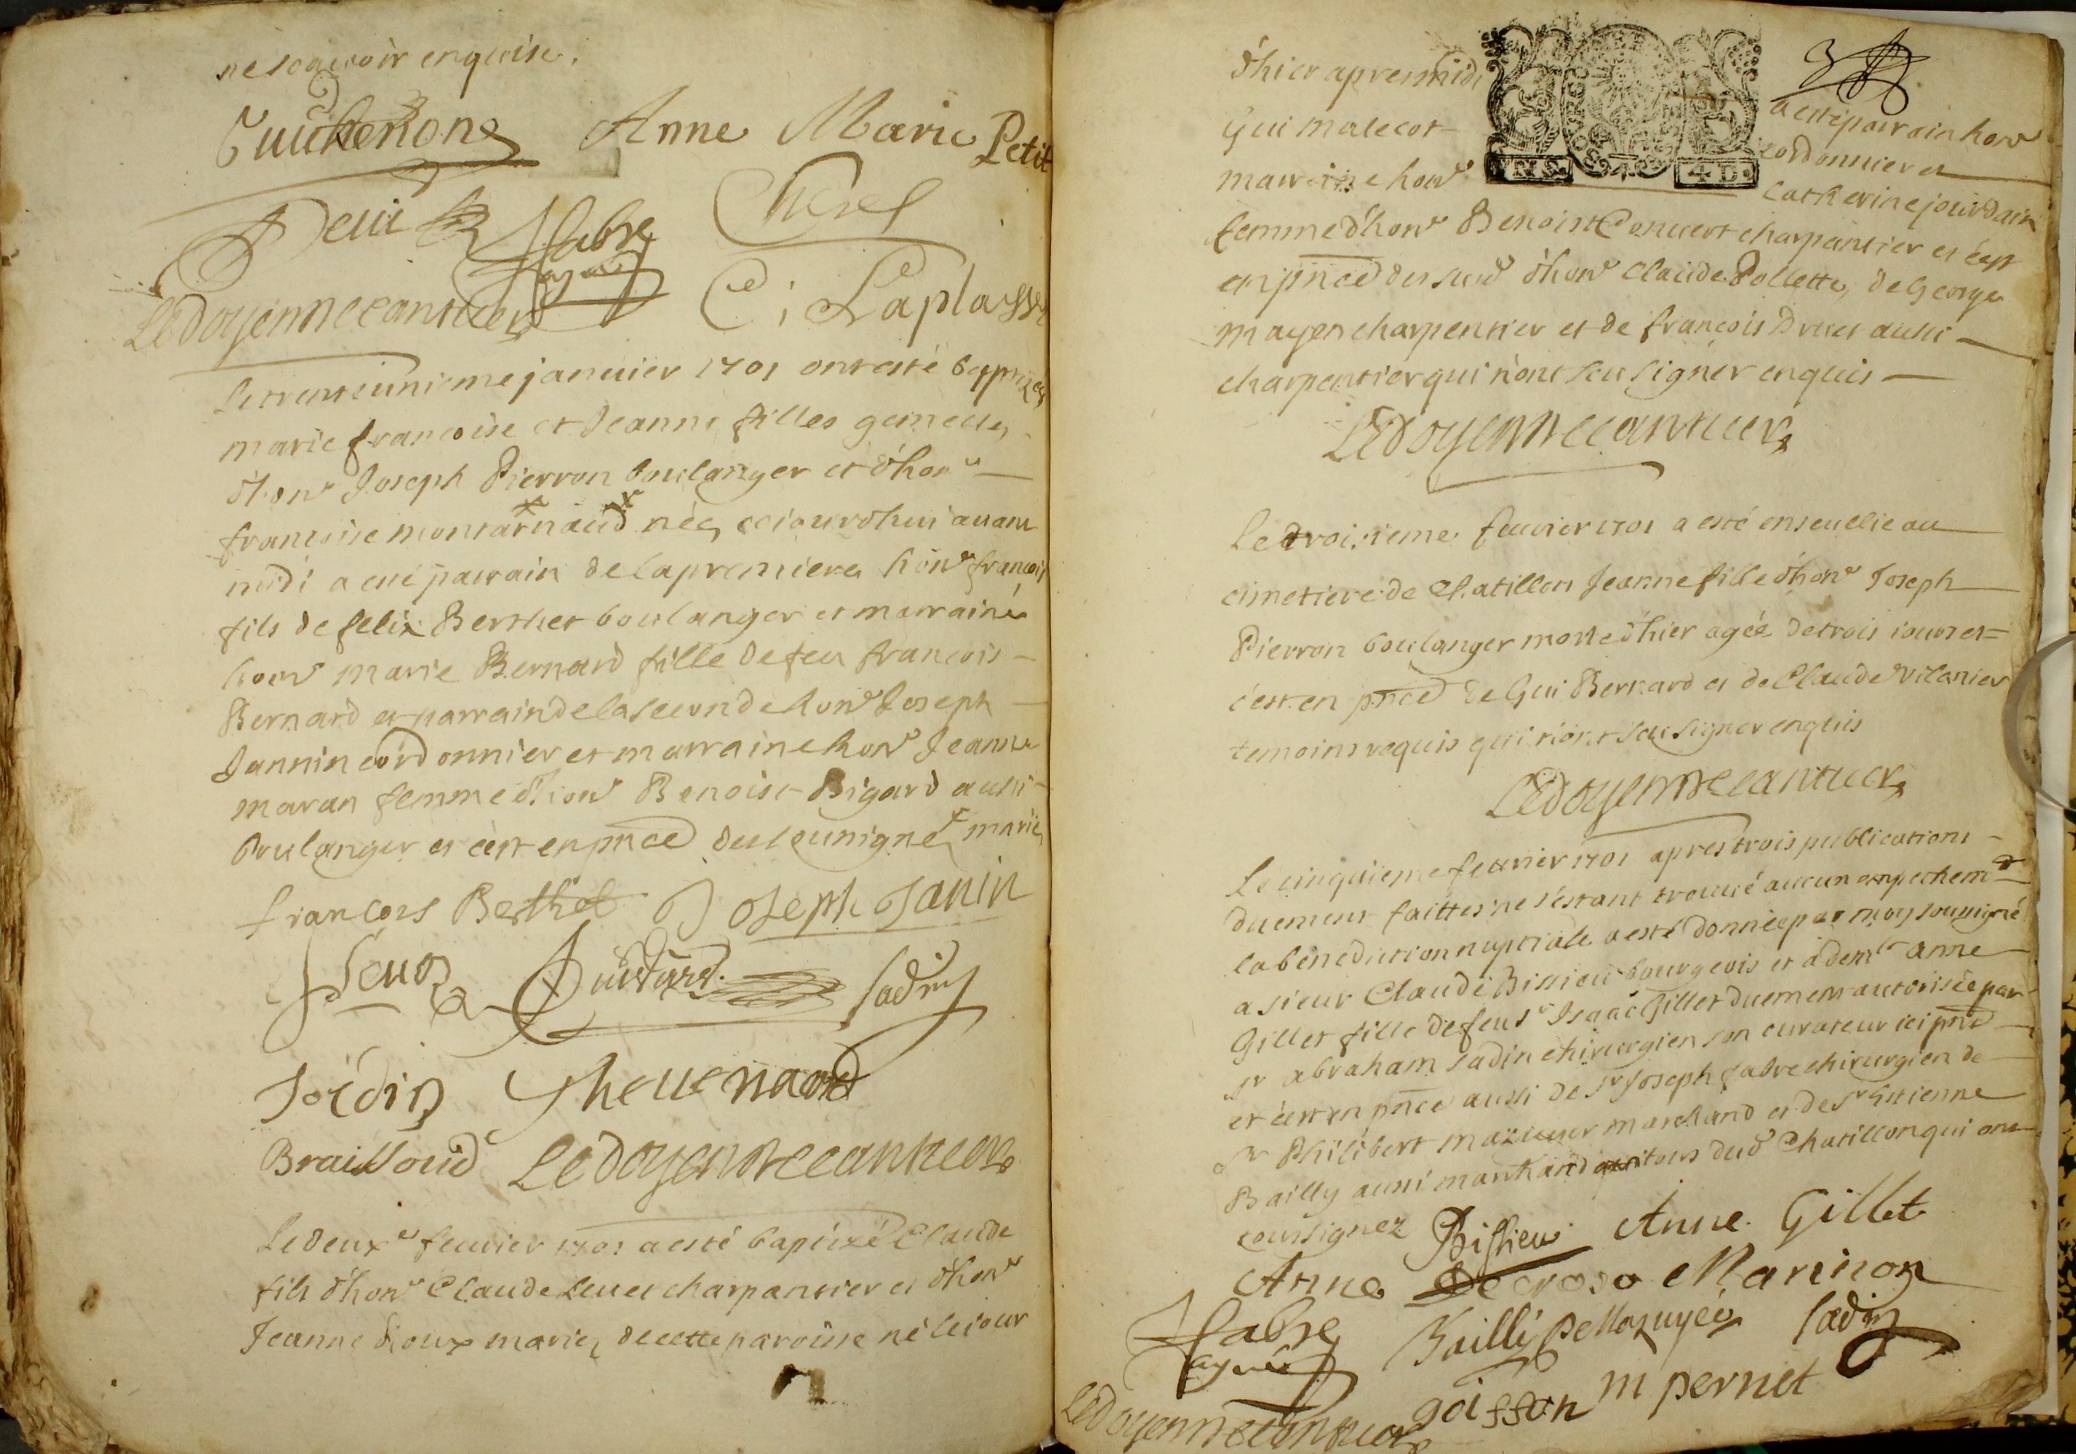 ne scavoir enquise.
Anne Marie Petit
fabre
ayné
C; Laplasse
Ledoyenne
Le trente unieme januier 1701 ont esté bapptizées
marie francoise et Jeanne filles gemelles
d'honr Joseph Pierron boulanger et d'honr
francoise montarnaud nées ceiourdhui auant
midi a esté parrain de la premiere honr francois
fils de felix Berthet boulanger et marraine
honr marie Bernard fille de feu francois
Bernard et parrain de la seconde honr Joseph
Jannin cordonnier et marraine honr Jeanne
maran femme d'honr Benoist Bigard aussi
boulanger et c'est en pnce des sousignés x mariés
francois Berthet Joseph Janin
Sadin
Joëdin Cheuenard
Brailloud Ledoyenne
Le deuxe feurier 1701 a esté baptizé Claude
fils d'honr Claude Leuet charpantier et d'honr
Jeanne Dioux mariés de cette paroisse né le iour
d'hier apres midi
a esté parrain honr
gui malecot
cordonnier et
marraine honr
Catherine jourdain
femme d'honr Benoist Conuert charpantier et c'est
en pnce des susd d'honr Claude Pollette, de George
mayen charpentier et de francois Druet aussi
charpentier qui n'ont sceu signer enquis
Ledoyenne
Le troisieme feurier 1701 a esté enseuelie au
cimetiere de Chatillon Jeanne fille d'honr Joseph
Pierron boulanger morte d'hier agée de trois iours et
c'est en pnce de Gui Bernard et de Claude vilanier
temoins requis qui n'ont sceu signer enquis
Ledoyenne
Le cinquieme feurier 1701 apres trois publications
duement faittes ne s'estant trouué aucun empechemt
la benediction nuptiale a esté donnée par moy sousigné
a sieur Claude Bissieu bourgeois et a demlle anne
Gillet fille de feu sr Isaac Gillet duement autorisée par
sr abraham sadin chirurgien son curateur ici pnt
et c'est en pnce aussi de sr Joseph fabre chirurgien de
sr Philibert mazuyer marchand et de sr Estienne
Bailly aussi marchand tous dud Chatillon qui ont
tous signez Bissieu Anne Gillet
Anne Decroso Marinon
fabre Bailli P Mazuyer Sadin
ayné
goiffon m pernet
Ledoyenne